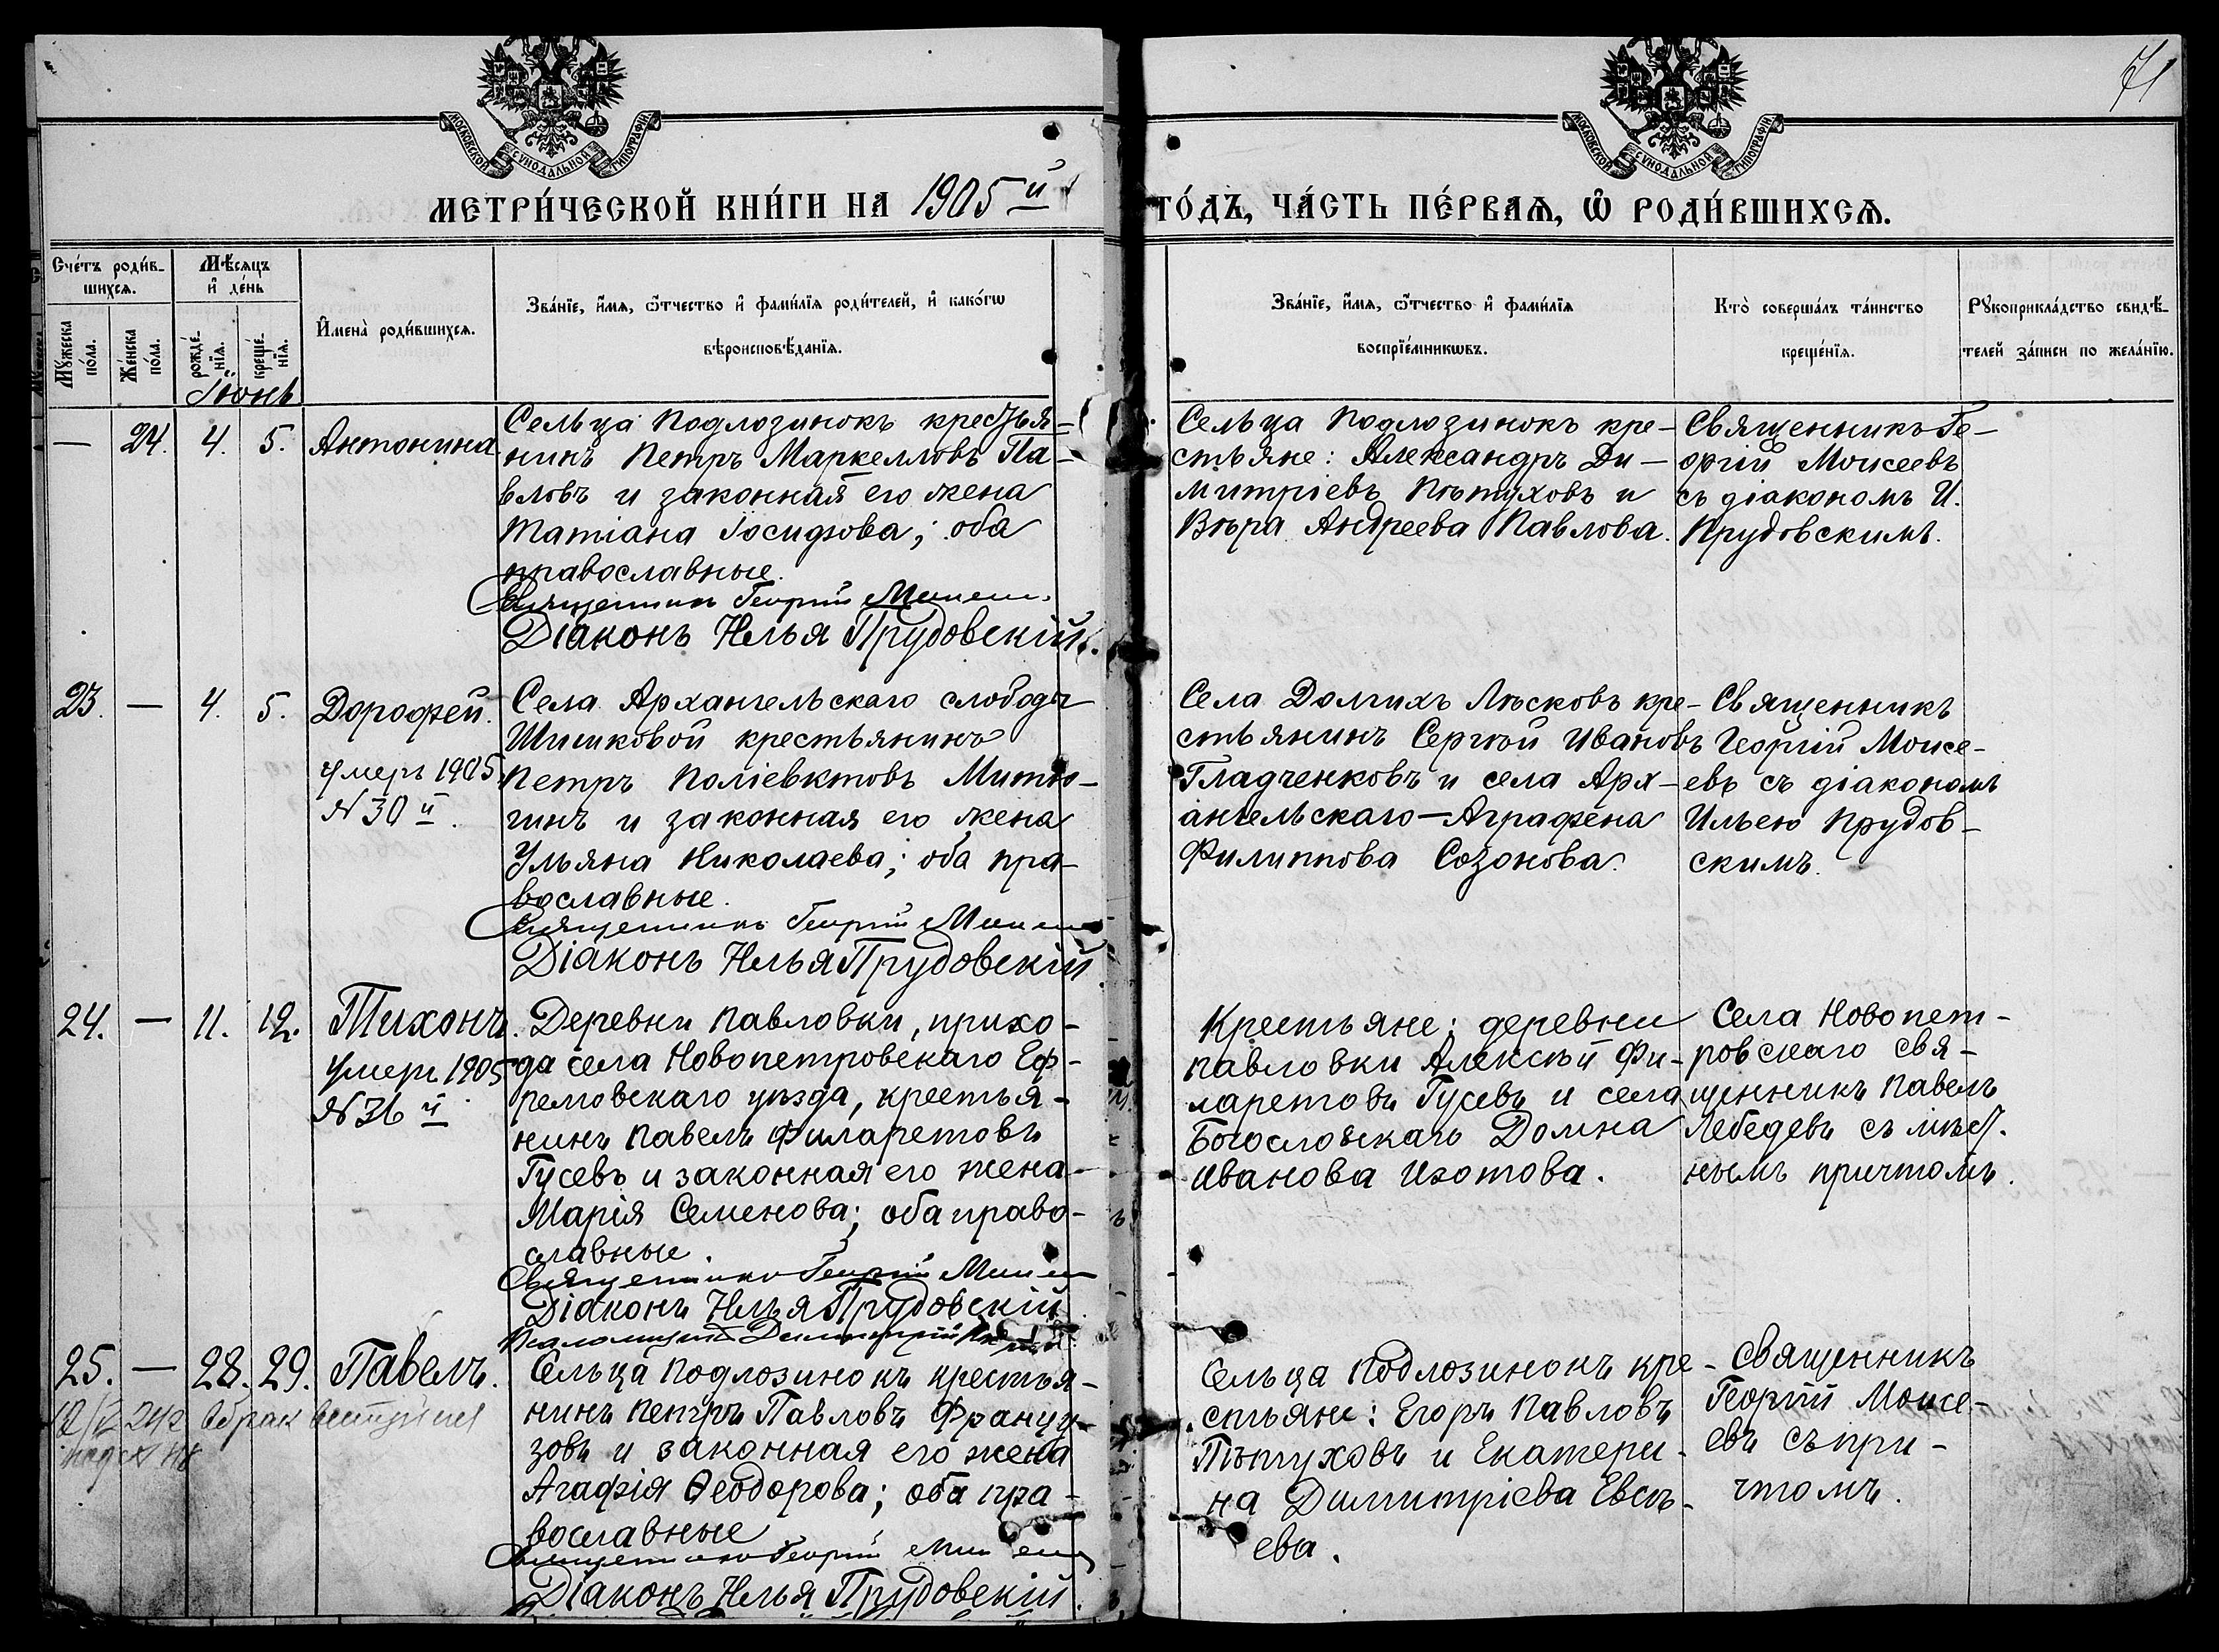 71
МОСКОВСКОЙ СУНОДАЛЬНОЙ ТИПОГРАФІИ
МОСКОВСКОЙ СУНОДАЛЬНОЙ ТИПОГРАФІИ
МЕТРИ́ЧЕСКОЙ КНИ́ГИ НА 1905 й
ГО́ДЪ, ЧА́СТЬ ПЕ́РВАѦ, Ѡ РОДИ́ВШИХСѦ.
Сче́тъ роди́в-
шихсѧ.
Мꙋ́жеска по́ла.
Же́нска по́ла.
Мѣ́сѧцъ
и҆ де́нь
рожде́-
нїѧ.
креще́-
нїѧ.
И҆мена̀ роди́вшихсѧ.
Зва́нїе, и҆́мѧ, ѻ҆́тчество и҆ фами́лїѧ роди́телей, и҆ како́гѡ
вѣроисповѣ́данїѧ.
Зва́нїе, и҆́мѧ, ѻ҆́тчество и҆ фами́лїѧ
воспрїе́мникѡвъ.
Кто̀ соверша́лъ та́инство
креще́нїѧ.
Рꙋкоприкла́дство свидѣ́-
телей за́писи по жела́нїю.
Іюнь
— 24. 4. 5. Антонина
Сельца Подлозинокъ крестья-
нинъ Петръ Маркелловъ Па-
вловъ и законная его жена
Татіана Іосифова; оба
православные.
Священникъ Георгій
Діаконъ Илья Прудовскій.
Сельца Подлозинокъ кре-
стьяне: Александръ Ди-
митріевъ Пѣтуховъ и
Вѣра Андреева Павлова.
Священникъ Ге-
оргій Моисеевъ
съ діакономъ И.
Прудовскимъ.
23. — 4. 5. Дорофей.
умеръ 1905
№ 30 й.
Села Архангельскаго слободы
Шишковой крестьянинъ
Петръ Поліевктовъ Митю-
гинъ и законная его жена
Ульяна Николаева; оба пра-
вославные.
Священникъ Георгій
Діаконъ Илья Прудовскій
Села Долгихъ Лѣсковъ кре-
стьянинъ Сергѣй Ивановъ
Гладченковъ и села Арх-
ангельскаго — Аграфена
Филиппова Созонова.
Священникъ
Георгій Моисе-
евъ съ діакономъ
Ильею Прудов-
скимъ.
24. — 11. 12. Тихонъ.
Умеръ 1905
№ 36 й
Деревни Павловки, прихо-
да села Новопетровскаго Еф-
ремовскаго уѣзда, крестья-
нинъ Павелъ Филаретовъ
Гусевъ и законная его жена
Марія Семенова; оба право-
славные.
Священникъ Георгій
Діаконъ Илья Прудовскій
Псаломщикъ Димитрій
Крестьяне: деревни
Павловки Алексѣй Фи-
ларетовъ Гусевъ и села
Богословскаго Домна
Иванова Изотова.
Села Новопет-
ровскаго свя-
щенникъ Павелъ
Лебедевъ съ мѣст.
нымъ причтомъ.
25. — 28. 29. Павелъ.
242 в брак вступил
Сельца Подлозинокъ крестья-
нинъ Петръ Павловъ Францу-
зовъ и законная его жена
Агафія Ѳеодорова; оба пра-
вославные
Священникъ Георгій
Діаконъ Илья Прудовскій.
Сельца Подлозинокъ кре-
стьяне: Егоръ Павловъ
Пѣтуховъ и Екатери-
на Димитріева Евсѣ-
ева.
Священникъ
Георгій Моисе-
евъ съ при-
чтомъ.